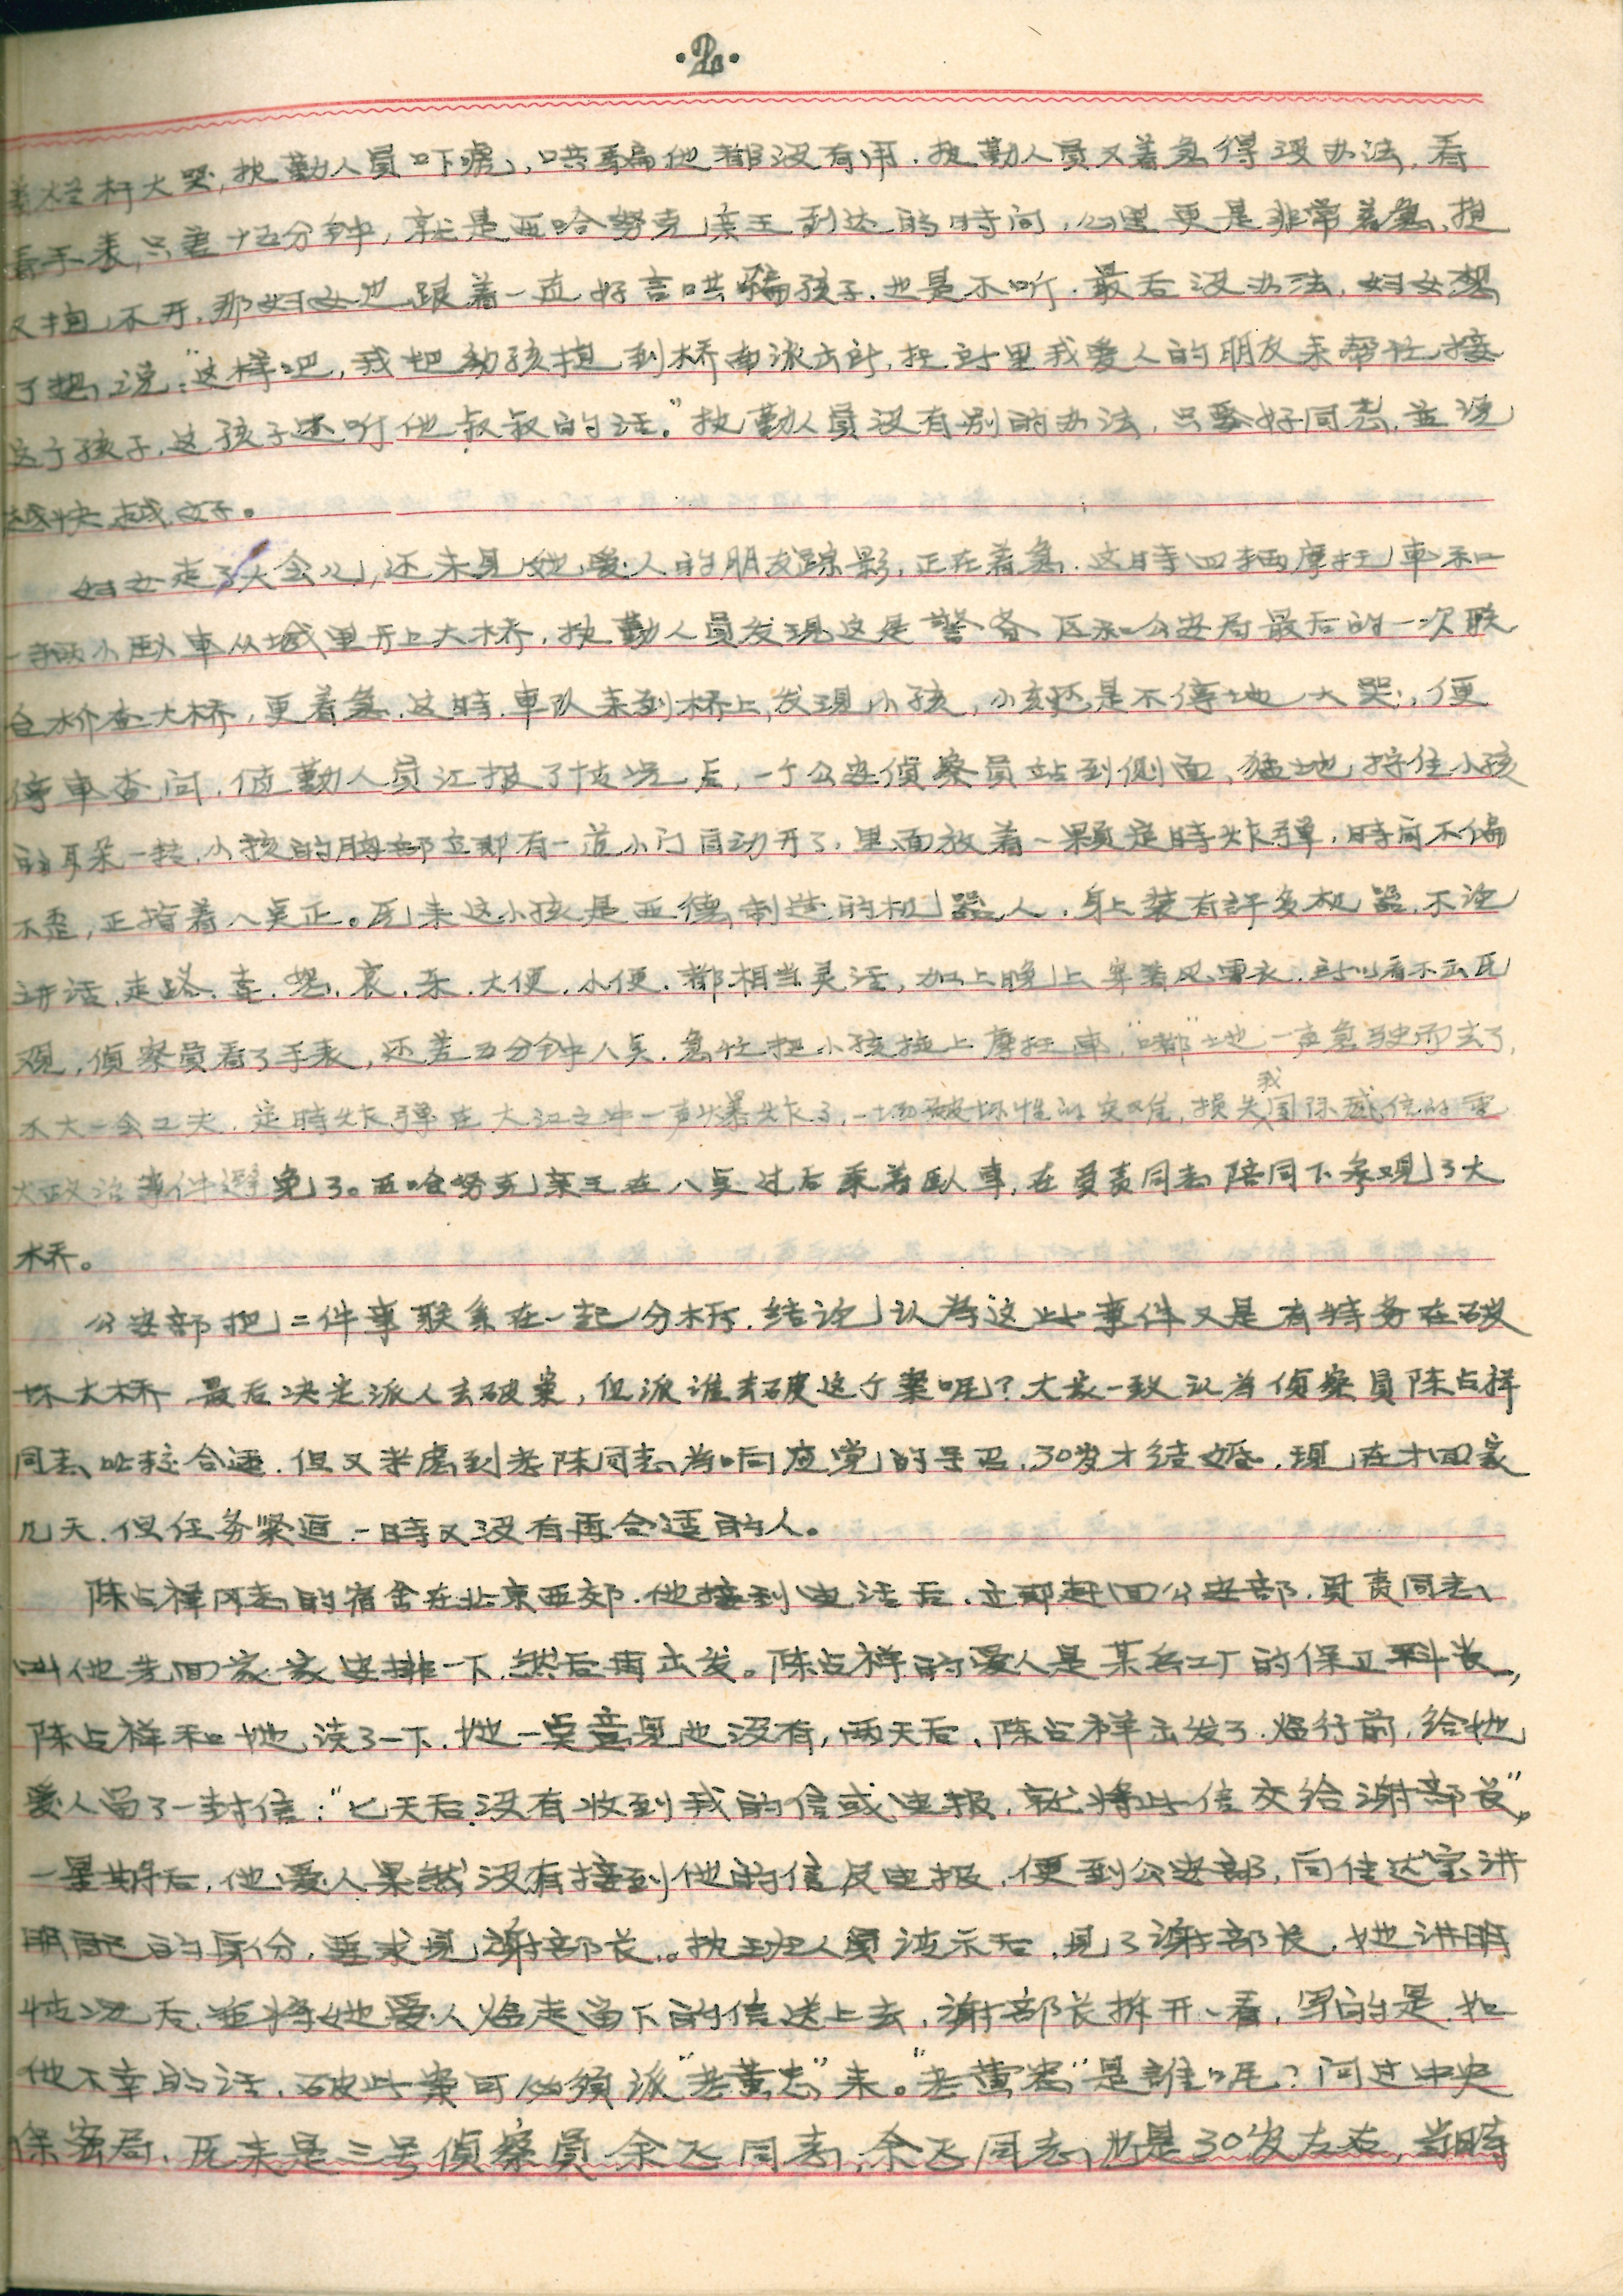 ·2·
着栏杆大哭,执勤人员吓唬、哄骗他都没有用.执勤人员又着急得没办法,看
看手表,只差十五分钟,就是西哈努克亲王到达的時间,心里更是非常着急,抱
又抱不开,那妇女也跟着一直好言哄骗孩子.也是不听.最后没办法,妇女想
了想,说:“这样吧,我把幼孩抱到桥南派出所,把所里我爱人的朋友来帮忙接
这个孩子,这孩子还听他叔叔的话.”执勤人员没有别的办法,只要好同志,並说
越快越好。
妇女走了大会儿,还未見她爱人的朋友踪影,正在着急.这時四輌摩托車和
一輌小臥車从城里开上大桥,执勤人员发現这是警备区和公安局最后的一次联
合检查大桥,更着急.这時.車队来到桥上,发現小孩,小孩还是不停地大哭,便
停車查问,值勤人员汇报了情况后,一个公安偵察员站到側面,猛地拧住小孩
的耳朵一转,小孩的胸部立即有一道小门自动开了,里面放着一颗定時炸弹,時间不偏
不歪,正指着八点正。原来这小孩是西德制造的机器人.身上装有許多机器,不论
讲话.走路.喜.怒.哀.乐.大便.小便.都相当灵活,加上晚上穿着风雪衣.所以看不出原
观,偵察员看了手表,还差五分钟八点.急忙把小孩拉上摩托車,“嘟”地一声急驶而去了,
不大一会工夫.定時炸弹在大江之中一声爆炸了,一场破坏性的灾难,損失我国际威信的重
大政治事件避免了。西哈努克亲王在八点过后乘着臥車,在負责同志陪同下参观了大
桥。
公安部把二件事联系在一起分析.结论认为这些事件又是有特务在破
坏大桥 最后决定派人去破案,但派谁去破这个案呢?大家一致认为偵察員陈占祥
同志比较合适.但又考虑到老陈同志为响应党的号召,30岁才结婚.現在才回家
几天.但任务紧迫.一時又没有再合适的人。
陈占祥同志的宿舍在北京西郊.他接到电话后.立即赶回公安部.負责同志
叫他先回家家安排一下.然后再出发。陈占祥的爱人是某名工厂的保卫科长,
陈占祥和她谈了一下.她一点意見也没有,两天后、陈占祥出发了.临行前,给他
爱人留了一封信:“七天后没有收到我的信或电报.就将此信交给謝部长”。
一星期后,他爱人果然没有接到他的信及电报,便到公安部,向传达室讲
明自己的身份,要求見謝部长.。执班人員请示后,見了謝部长.她讲明
情况后.並将她爱人临走留下的信送上去,謝部长拆开一看,写的是.如
他不幸的话.破此案可必须派“老黄忠”来。“老黄忠”是誰呢?问过中央
保密局.原来是三号偵察員余飞同志,余飞同志也是30岁左右,当時